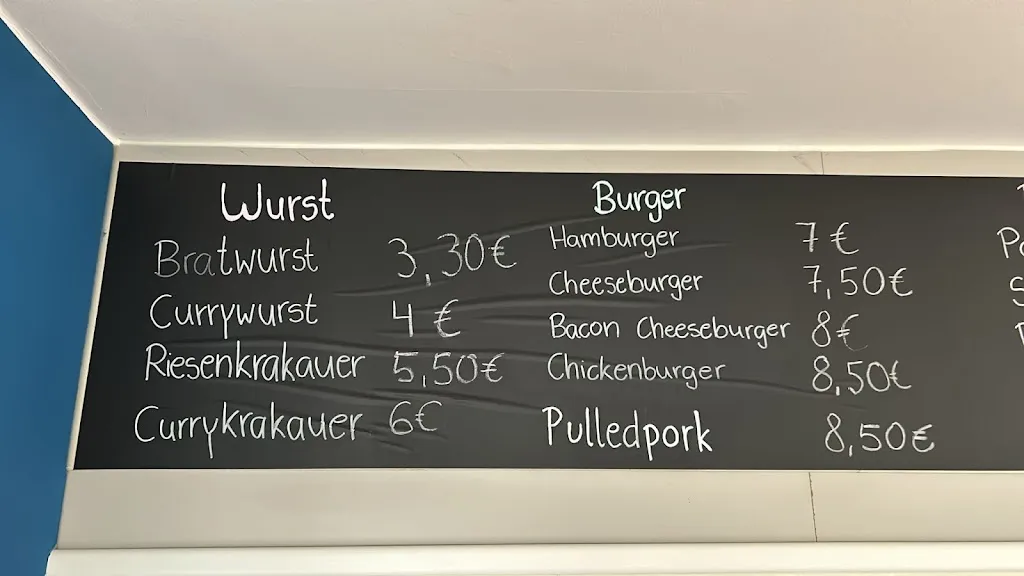 Wurst
Bratwurst 3,30€
Currywurst 4 €
Riesenkrakauer 5,50€
Currykrakauer 6€
Burger
Hamburger 7€
Cheeseburger 7,50€
Bacon Cheeseburger 8€
Chickenburger 8,50€
Pulledpork 8,50€